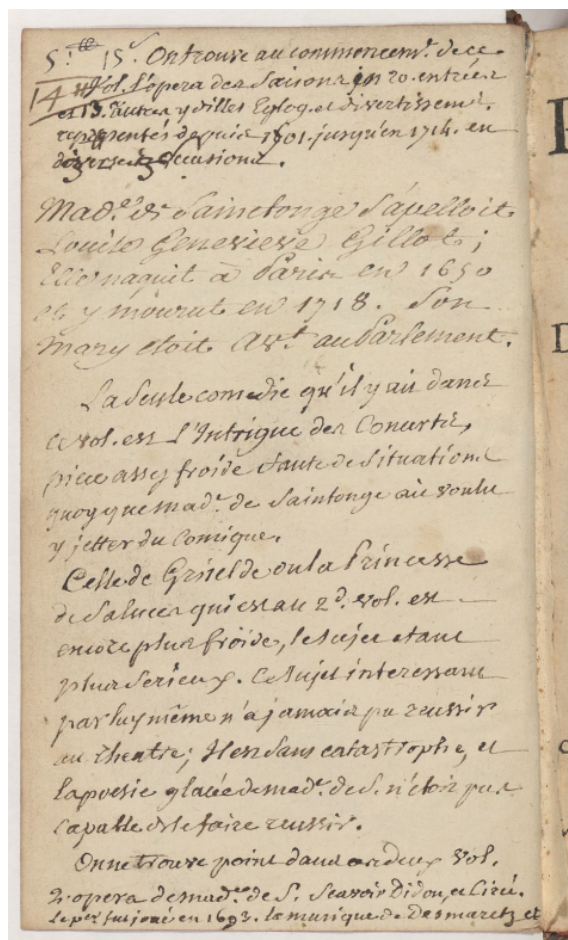 5.ᵗᵗ 15ˢ. On trouve au commencemᵗ. de ce
Vol. l'opera des Saisons en 20. entrées
et 13. autres ydilles Eglog. et divertissemᵗ.
representés depuis 1701. jusqu'en 1714. en
diverses occasions.
Madᵉ. de Sainctonge s'apelloit
Louise Genevieve Gillot;
Elle naquit à Paris en 1650
et y mourut en 1718. Son
mary etoit Avᵗ. au Parlement.
La seule comedie qu'il y ait dans
ce vol. est l'Intrigue des Concerts,
piece assez froide faute de situations
quoy que madᵉ. de Saintonge ait voulu
y jetter du Comique.
Celle de Griselde ou la Princesse
de Saluces qui est au 2ᵈ. vol. est
encore plus froide, le sujet etant
plus serieux. Ce sujet interessant
par luy même n'a jamais pu reussir
au theatre; Il est sans catastrophe, et
la poesie glacée de madᵉ. de S. n'étoit pas
capable de le faire reussir.
On ne trouve point dans ces deux Vol.
2. opera de madᵉ. de S. Scavoir Didon, et Circé.
le pᵉʳ fut joué en 1693. la musique de Desmaretz et